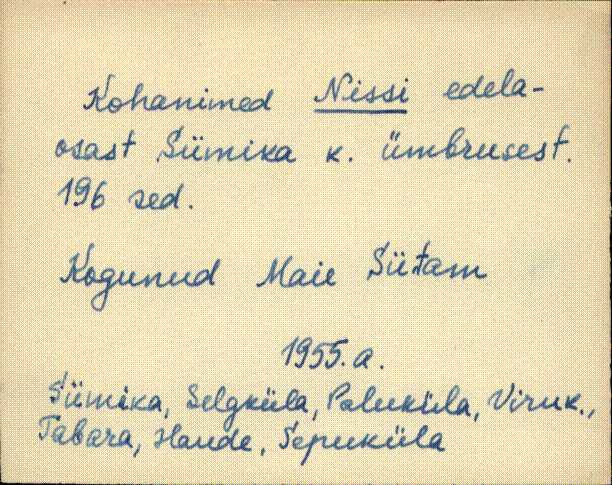 Kohanimed Nissi edela-
osast Siimika k. ümbrusest.
196 sed.
Kogunud Maie Siitam
1955.a.
Siimika, Selgküla, Paluküla, Viruk.,
Tabara, Haude, Sepuküla